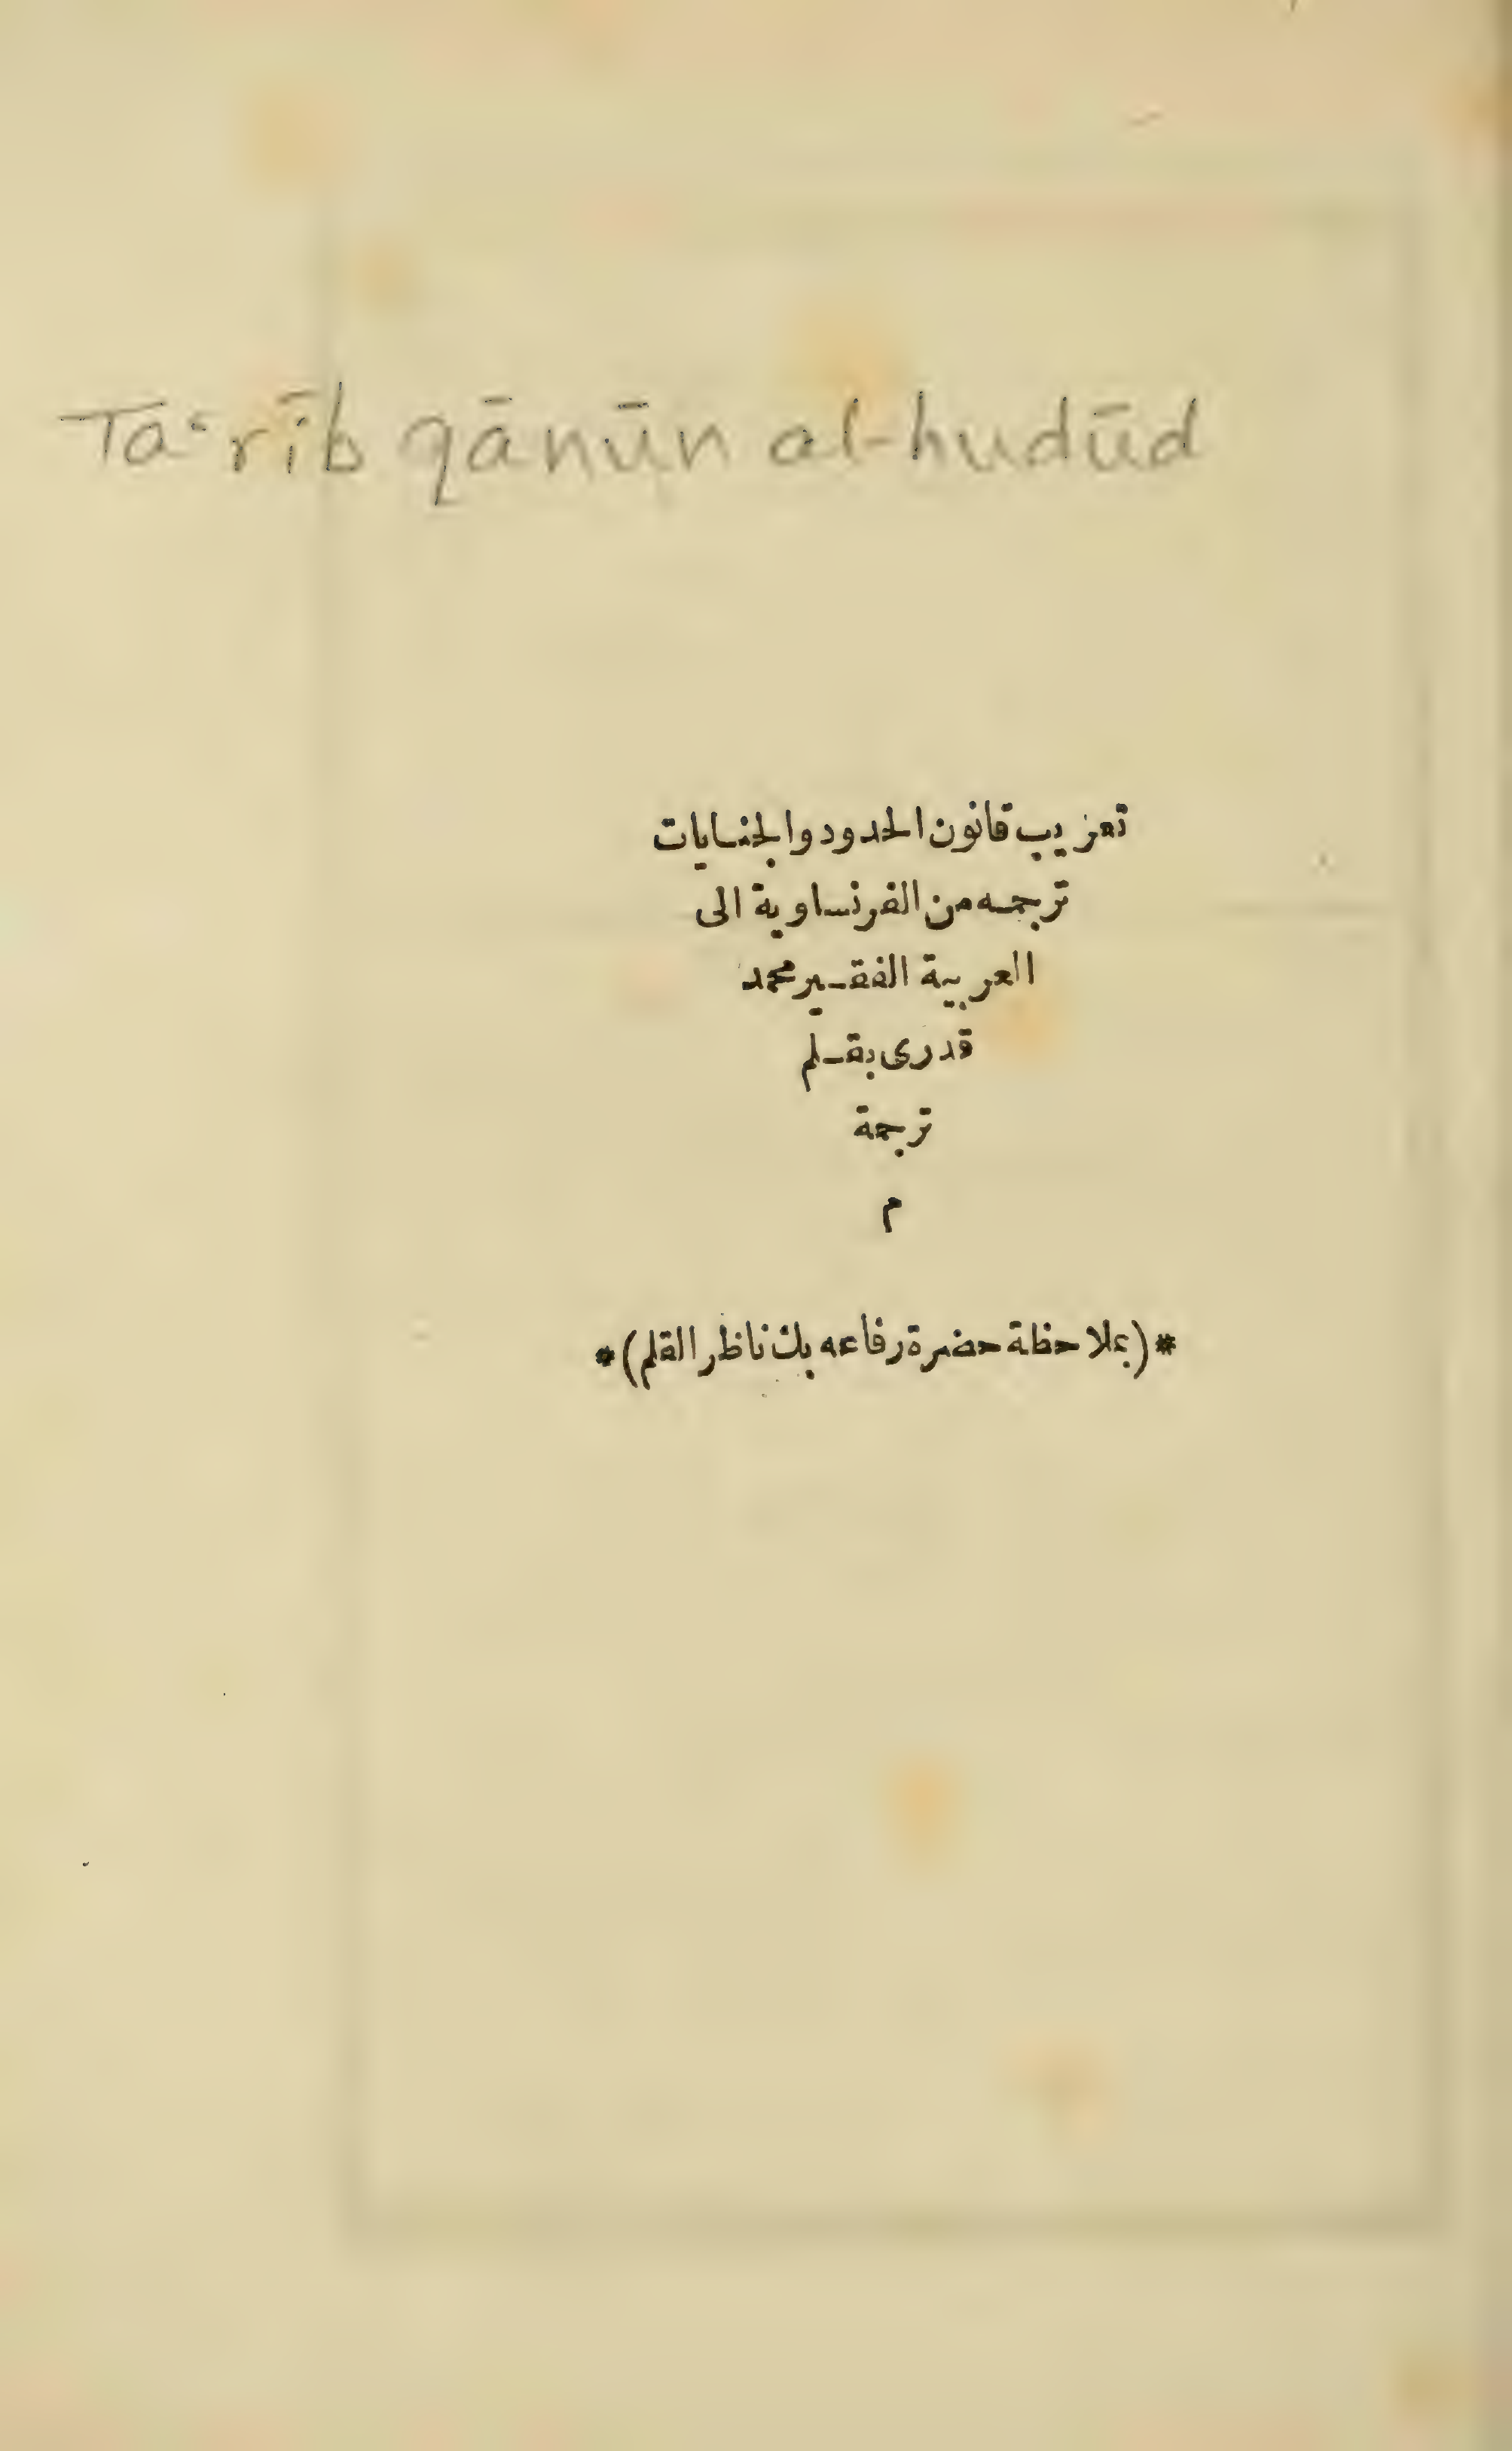 Ta-rīb qānūn al-hudūd
تعريب قانون الحدود والجنايات
ترجمه من الفرنساوية الى
العربية الفقير محمد
قدرى بقلم
ترجمة
م
*(بملاحظة حضرة رفاعه بك ناظر القلم)*